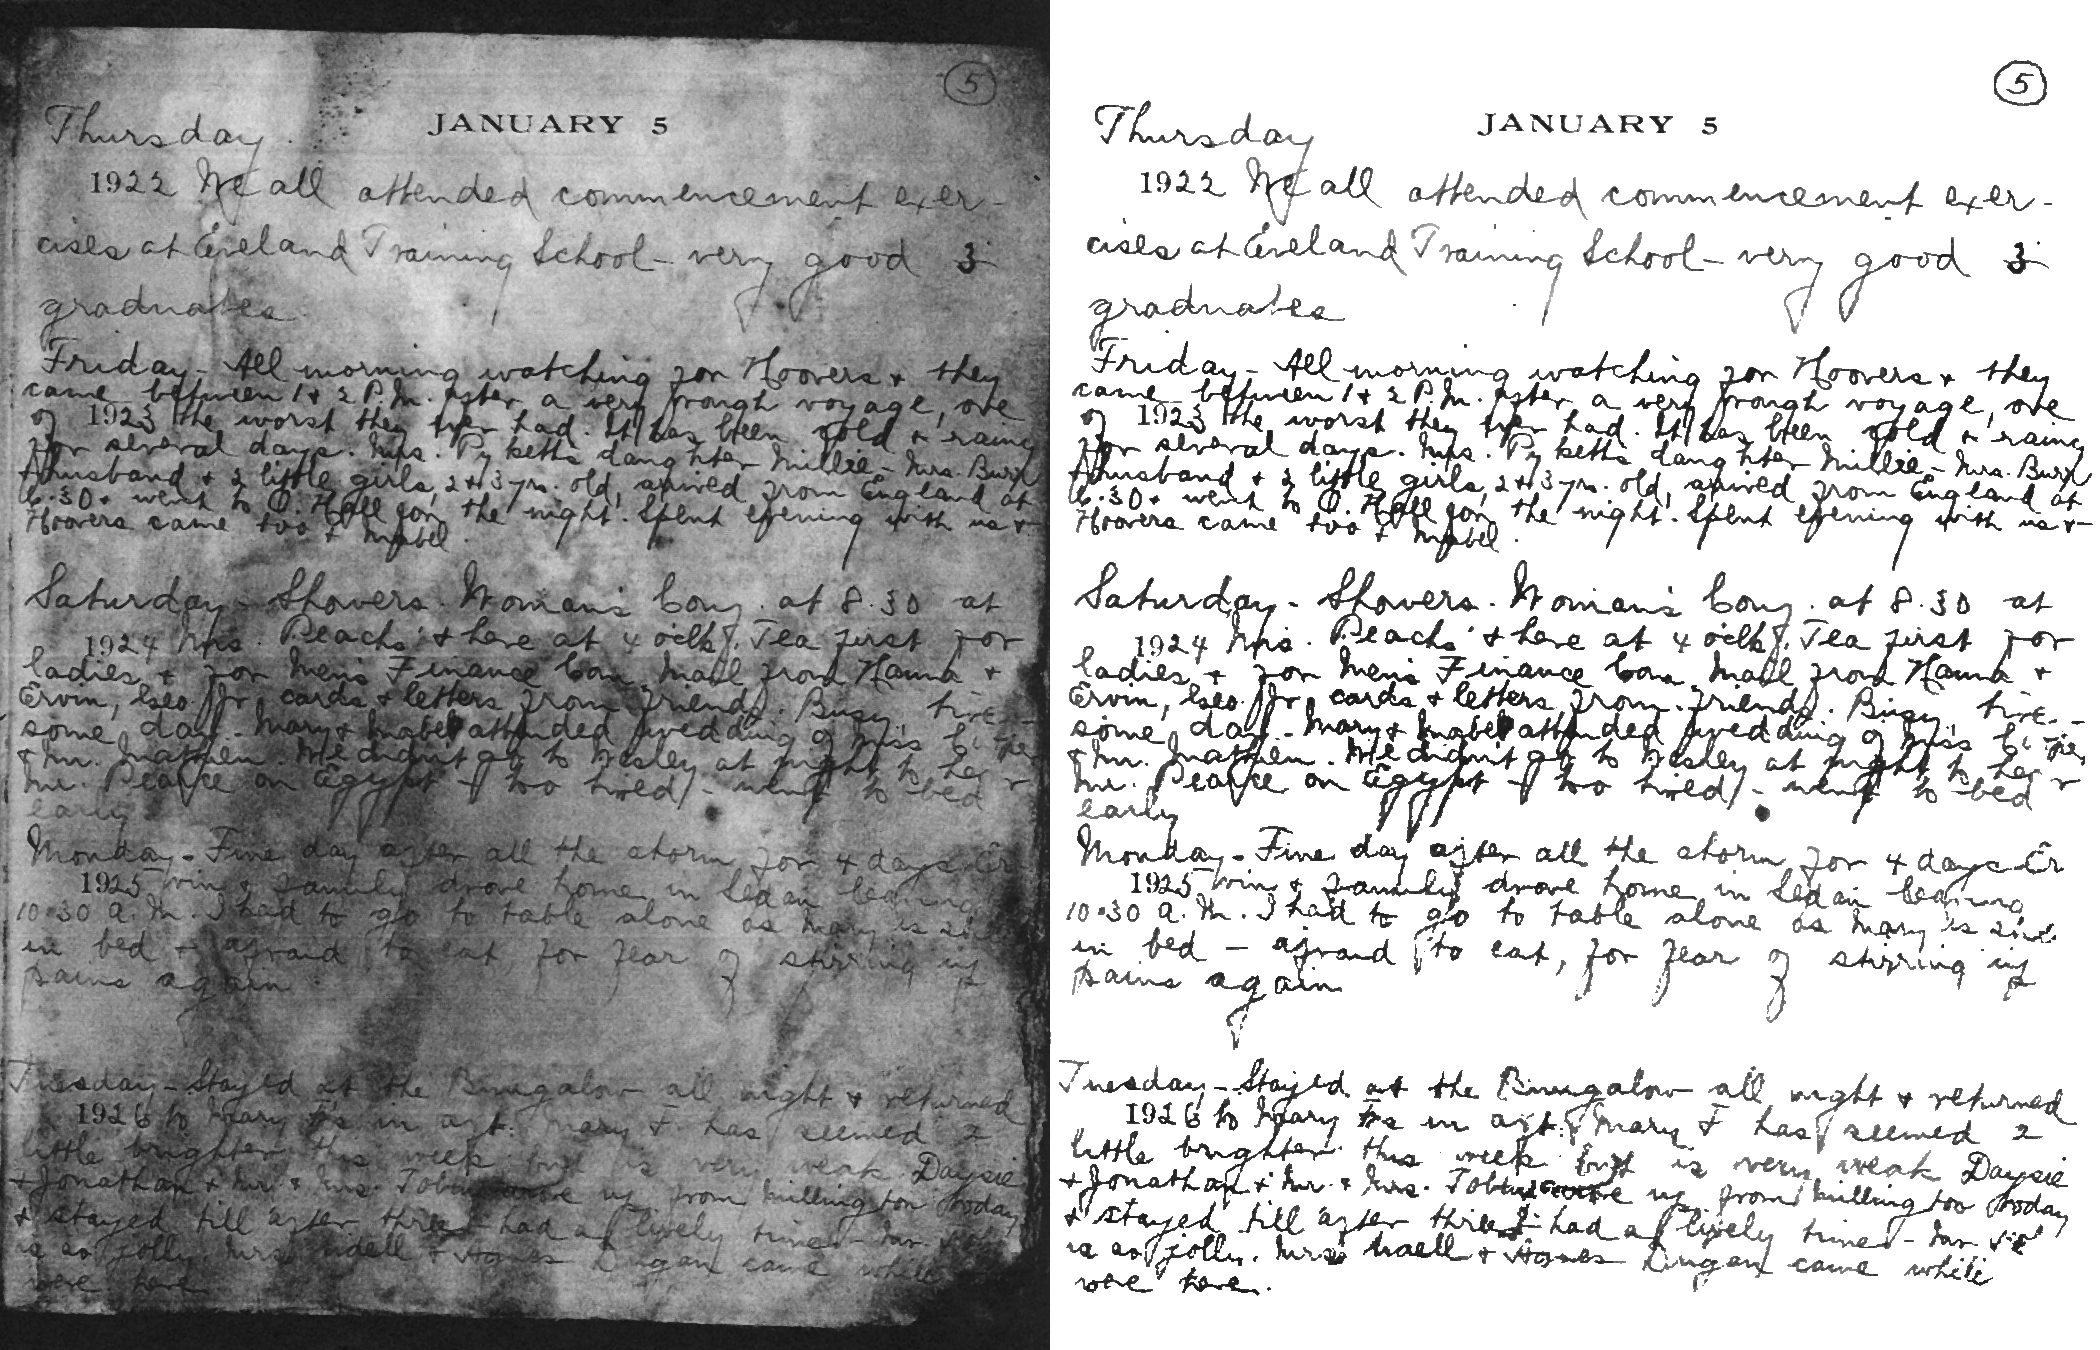 5
JANUARY 5
Thursday
1922 We all attended commencement exer-
cises at Eveland Training School - very good 3
graduates
Friday - All morning watching for Hoovers & they
came between 1 & 2 P.M. after a very rough voyage, one
of 1923 the worst they ever had. It has been cold & rainy
for several days. Mrs. Pyketts daughter Millie - Mrs. Burr
husband & 2 little girls, 2 & 3 yrs. old, arrived from England at
6.30 & went to O. Hall for the night. Spent evening with us &
Hoovers came too & Mabel.
Saturday - Showers. Woman's Conf. at 8.30 at
1924 Mrs. Peachs' & here at 4 o'clk. Tea first for
ladies & for Men's Finance Com. Mail from Hanna &
Ervin, Geo. Jr cards & letters from friends. Busy, tire-
some day - Mary & Mabel attended wedding of Miss
& Mr. Mathew. We didn't go to Wesley at night to hear
Mr. Pearce on Egypt - too tired - went to bed
early
Monday - Fine day after all the storm for 4 days Er
1925 vin & family drove home in Sedan leaving
10.30 A.M. I had to go to table alone as Mary is still
in bed - afraid to eat, for fear of stirring up
pains again
Tuesday - Stayed at the Bungalow all night & returned
1926 to Mary F's in aft. Mary F has seemed a
little brighter this week but is very weak Daysie
& Jonathan & Mr. & Mrs. came up from Millington today
& stayed till after three - had a lively time - Mr.
is so jolly. Mrs. & Agnes Dugan came while
were here.